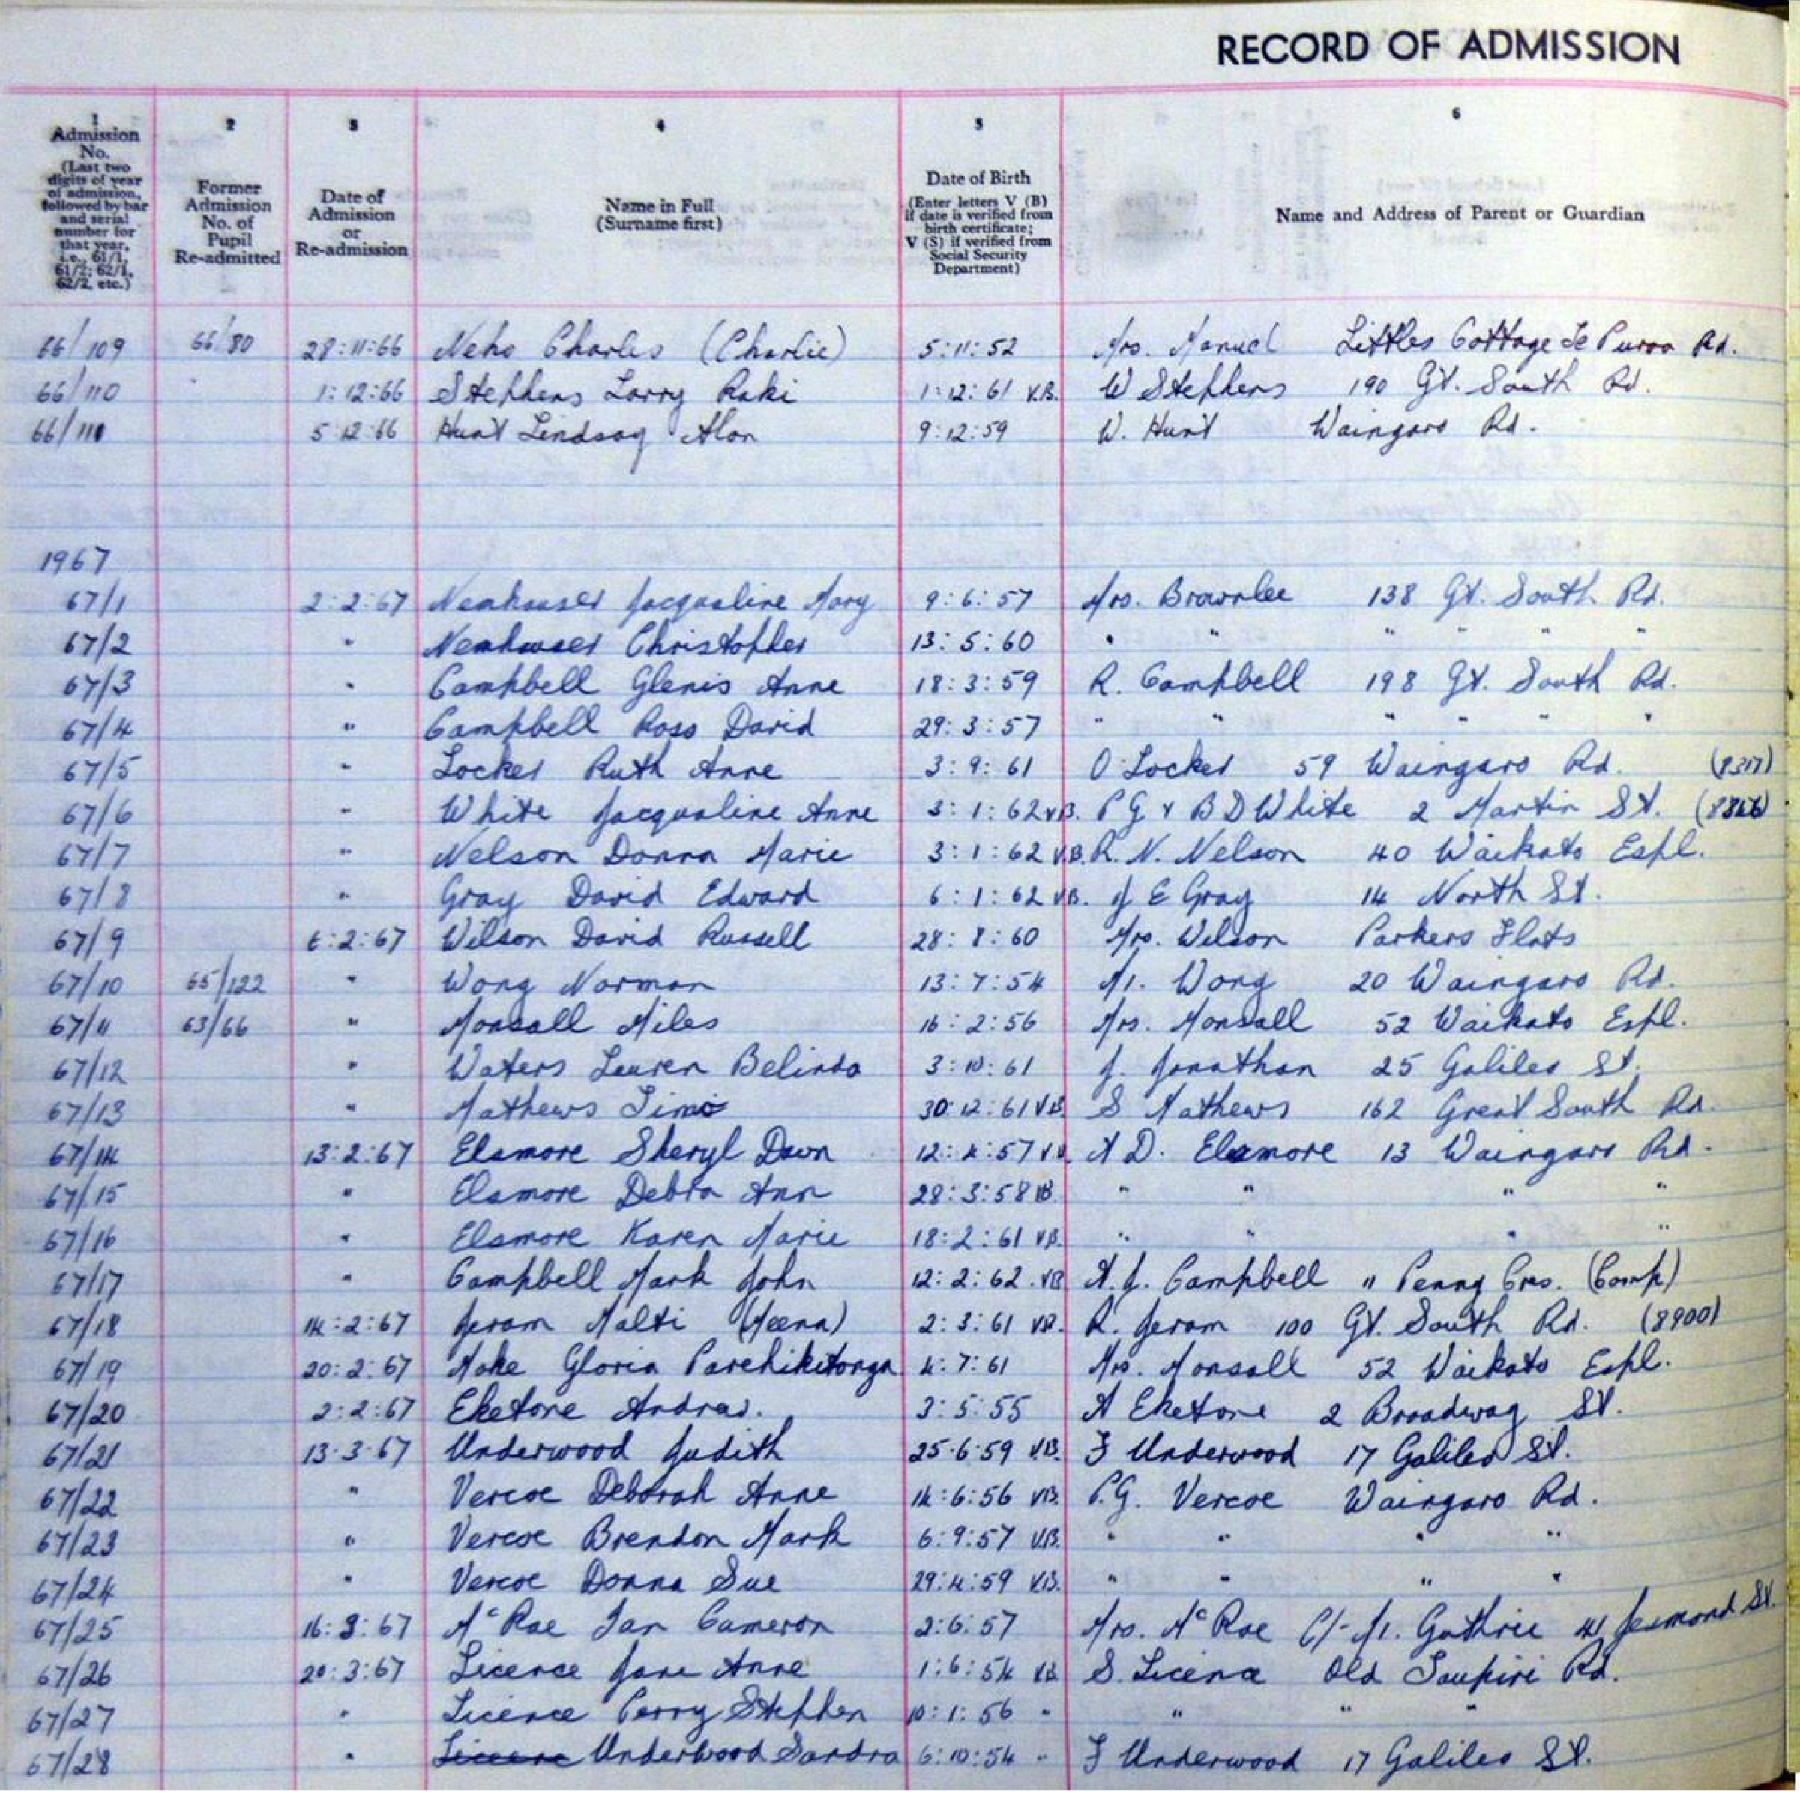 RECORD OF ADMISSION
1 2 3 4 5 6
Admission No. (Last two digits of year of admission, followed by bar and serial number for that year, i.e., 61/1, 61/2; 62/1, 62/2, etc.)
Former Admission No. of Pupil Re-admitted
Date of Admission or Re-admission
Name in Full (Surname first)
Date of Birth (Enter letters V (B) if date is verified from birth certificate; V (S) if verified from Social Security Department)
Name and Address of Parent or Guardian
66/109 66/80 28:11:66 Neho Charles (Charlie) 5:11:52 Mrs. Manuel Littles Cottage Te Puroa Rd.
66/110 1:12:66 Stephens Larry Raki 1:12:61 V.B. W Stephens 190 Gt. South Rd.
66/111 5:12:66 Hunt Lindsay Alan 9:12:59 W. Hunt Waingaro Rd.
1967
67/1 2:2:67 Jacqueline Mary 9:6:57 Mrs. Brownlee 138 Gt. South Rd.
67/2 " Christopher 13:5:60 " " " " " "
67/3 " Campbell Glenis Anne 18:3:59 R. Campbell 198 Gt. South Rd.
67/4 " Campbell Ross David 29:3:57 " " " " " "
67/5 " Locker Ruth Anne 3:9:61 O Locker 59 Waingaro Rd. (8317)
67/6 " White Jacqueline Anne 3:1:62 V.B. P G & B D White 2 Martin St.
67/7 " Nelson Donna Marie 3:1:62 V.B. R. N. Nelson 40 Waikato Espl.
67/8 " Gray David Edward 6:1:62 V.B. J E Gray 14 North St.
67/9 6:2:67 Wilson David Russell 28:8:60 Mrs. Wilson Parkers Flats
67/10 65/122 " Wong Norman 13:7:54 Mr. Wong 20 Waingaro Rd.
67/11 63/66 " Monsall Miles 16:2:56 Mrs. Monsall 52 Waikato Espl.
67/12 " Waters Lauren Belinda 3:10:61 J. Jonathan 25 Galileo St.
67/13 " Mathews Timo 30:12:61 V.B. S Mathews 162 Great South Rd.
67/14 13:2:67 Elsmore Sheryl Dawn 12:4:57 V.B. A D. Elsmore 13 Waingaro Rd.
67/15 " Elsmore Debra Ann 28:3:58 VB. " " " "
67/16 " Elsmore Karen Marie 18:2:61 VB. " " " "
67/17 " Campbell Mark John 12:2:62 VB A. J. Campbell 11 Penny Cres. (Comp)
67/18 14:2:67 Jeram Malti (Meena) 2:3:61 VB. R. Jeram 100 Gt. South Rd. (8900)
67/19 20:2:67 Moke Gloria Parehikitanga 4:7:61 Mrs. Monsall 52 Waikato Espl.
67/20 2:2:67 Eketone Andrew. 3:5:55 A Eketone 2 Broadway St.
67/21 13:3:67 Underwood Judith 25:6:59 V.B. F Underwood 17 Galileo St.
67/22 " Vercoe Deborah Anne 14:6:56 VB. P.G. Vercoe Waingaro Rd.
67/23 " Vercoe Brendon Mark 6:9:57 V.B. " " " "
67/24 " Vercoe Donna Sue 29:4:59 V.B. " " " "
67/25 16:3:67 McRae Ian Cameron 2:6:57 Mrs. McRae C/- Mr. Guthrie 41 Jesmond St.
67/26 20:3:67 Licence Jane Anne 1:6:54 V.B. S. Licence Old Taupiri Rd.
67/27 " Licence Perry Stephen 10:1:56 " " " "
67/28 " Licence Underwood Sandra 6:10:54 " F Underwood 17 Galileo St.